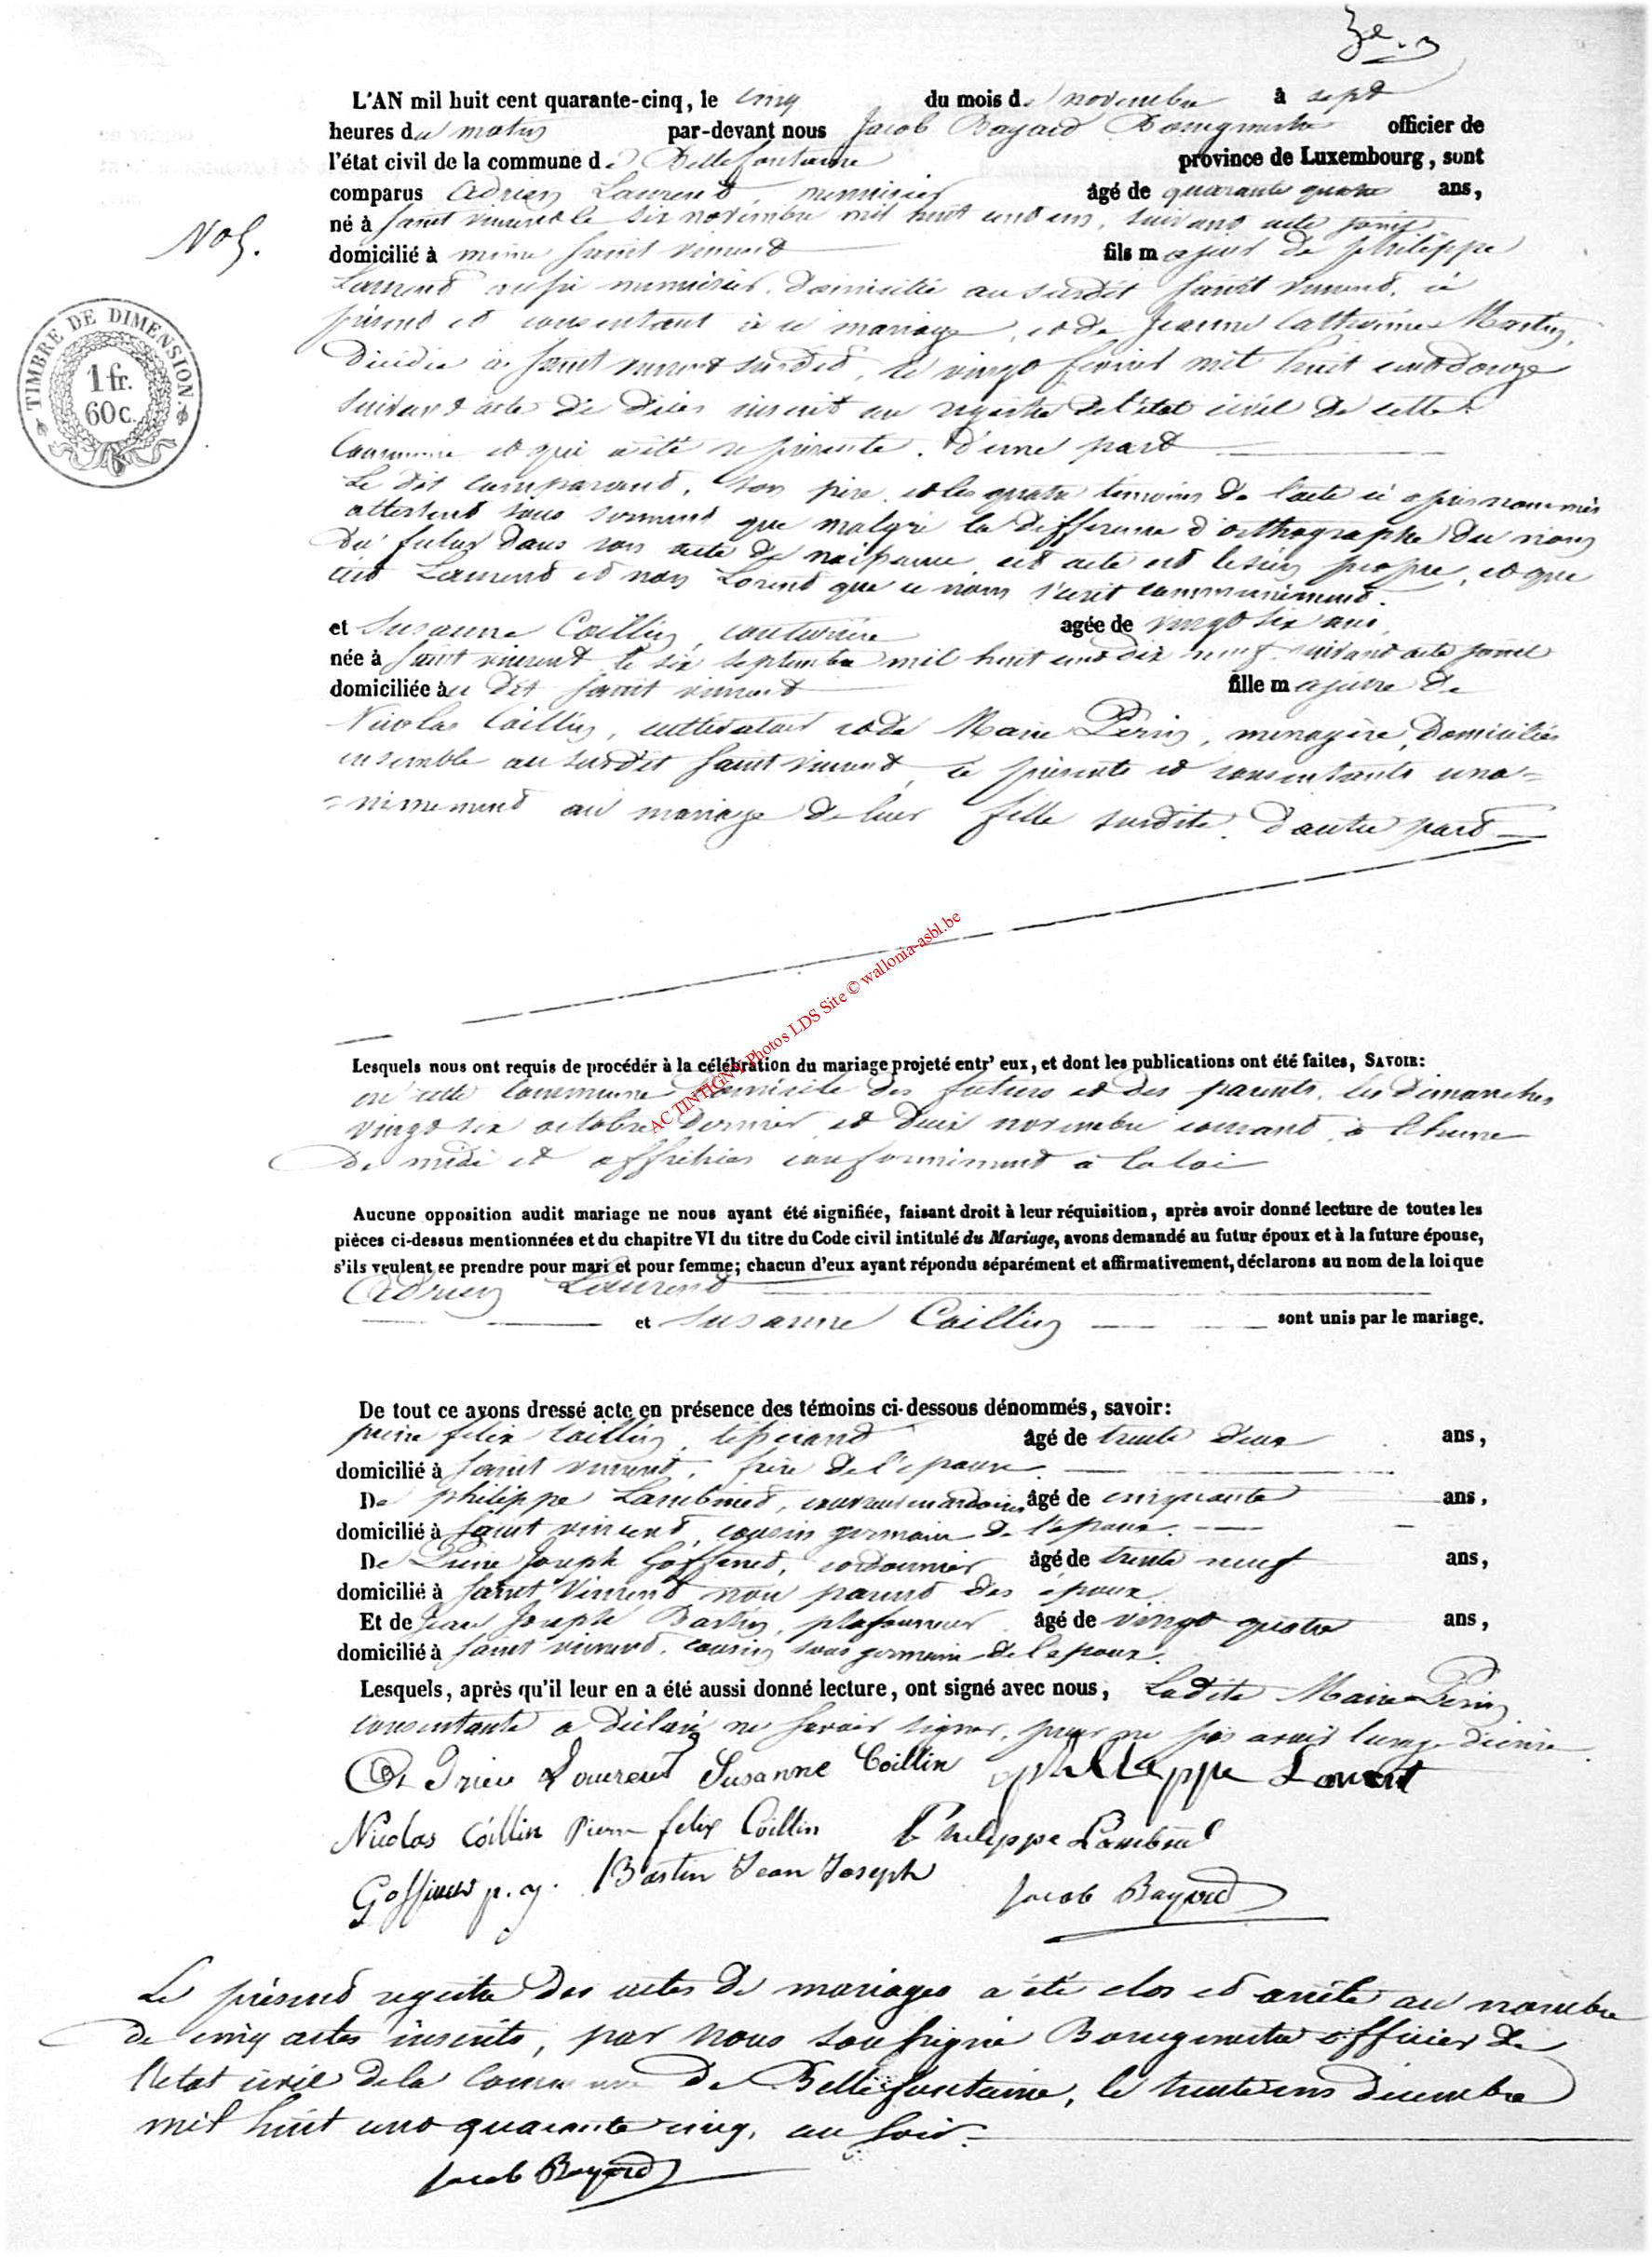 3e.
L'AN mil huit cent quarante-cinq, le cinq du mois de novembre à sept
heures du matin par-devant nous Jacob Bayard Bourgmestre officier de
l'état civil de la commune de Bellefontaine province de Luxembourg, sont
comparus Adrien Laurent, menuisier âgé de quarante quatre ans,
né à saint vincent le six novembre mil huit cent un, suivant acte joint
No 5.
domicilié à même saint vincent fils majeur de philippe
Laurent aussi menuisier, domicilié au susdit saint vincent, ci
présent et consentant à ce mariage, et de Jeanne Catherine Martin,
Décédée à saint vincent susdit, le vingt février mil huit cent douze
suivant acte de décès inscrit au registre de l'état civil de cette
Commune et qui a été représenté. d'une part
Le dit comparant, son père et les quatre témoins de l'acte ci après nommés
attestent sous serment que malgré la différence d'orthographe du nom
du futur dans son acte de naissance cet acte est le sien propre, et que
c'est Laurent et non Lorent que ce nom s'écrit communément.
et Susanne Coillin, couturière agée de vingt six ans
née à saint vincent le six septembre mil huit cent dix neuf suivant acte joint
domiciliée au dit saint vincent fille majeure de
Nicolas Coillin, cultivateur et de Marie Périn, ménagère, domiciliés
ensemble au susdit saint vincent, ci présents et consentants una=
=nimement au mariage de leur fille susdite. d'autre part
TIMBRE DE DIMENSION.
1 fr.
60 c.
AC TINTIGNY Photos LDS Site © wallonia-asbl.be
Lesquels nous ont requis de procédér à la célébration du mariage projeté entr' eux, et dont les publications ont été faites, SAVOIR:
en cette Commune domicile des futurs et des parents, les dimanches
vingt six octobre dernier et deux novembre courant à l'heure
De midi et affichées conformément à la loi
Aucune opposition audit mariage ne nous ayant été signifiée, faisant droit à leur réquisition, après avoir donné lecture de toutes les
pièces ci-dessus mentionnées et du chapitre VI du titre du Code civil intitulé du Mariage, avons demandé au futur époux et à la future épouse,
s'ils veulent se prendre pour mari et pour femme; chacun d'eux ayant répondu séparément et affirmativement, déclarons au nom de la loi que
Adrien Laurent
et Susanne Coillin sont unis par le mariage.
De tout ce avons dressé acte en présence des témoins ci-dessous dénommés, savoir:
pierre felix Coillin, tisserand âgé de trente deux ans,
domicilié à saint vincent, frère de l'épouse.
De philippe Lambinet, âgé de cinquante ans,
domicilié à saint vincent, cousin germain de l'époux.
De Pierre Joseph Goffinet, cordonnier âgé de trente neuf ans,
domicilié à saint Vincent non parent des époux
Et de Jean Joseph Bastin, plafonneur âgé de vingt quatre ans,
domicilié à saint vincent, cousin sous germain de l'époux.
Lesquels, après qu'il leur en a été aussi donné lecture, ont signé avec nous, Ladite Marie Périn
consentante a déclaré ne savoir signer, pour ne pas avoir l'usage d'écrire.
Adrien Laurent Susanne Coillin philleppe Lorent
Nicolas Coillin Pierre felix Coillin Philippe Lambinet
Goffinet p. j. Bastin Jean Joseph Jacob Bayard
Le présent registre des actes de mariages a été clos et arrêté au nombre
de cinq actes inscrits, par nous soussigné Bourgmestre officier de
l'état civil de la Commune de Bellefontaine, le trente un décembre
mil huit cent quarante cinq, au soir.
Jacob Bayard